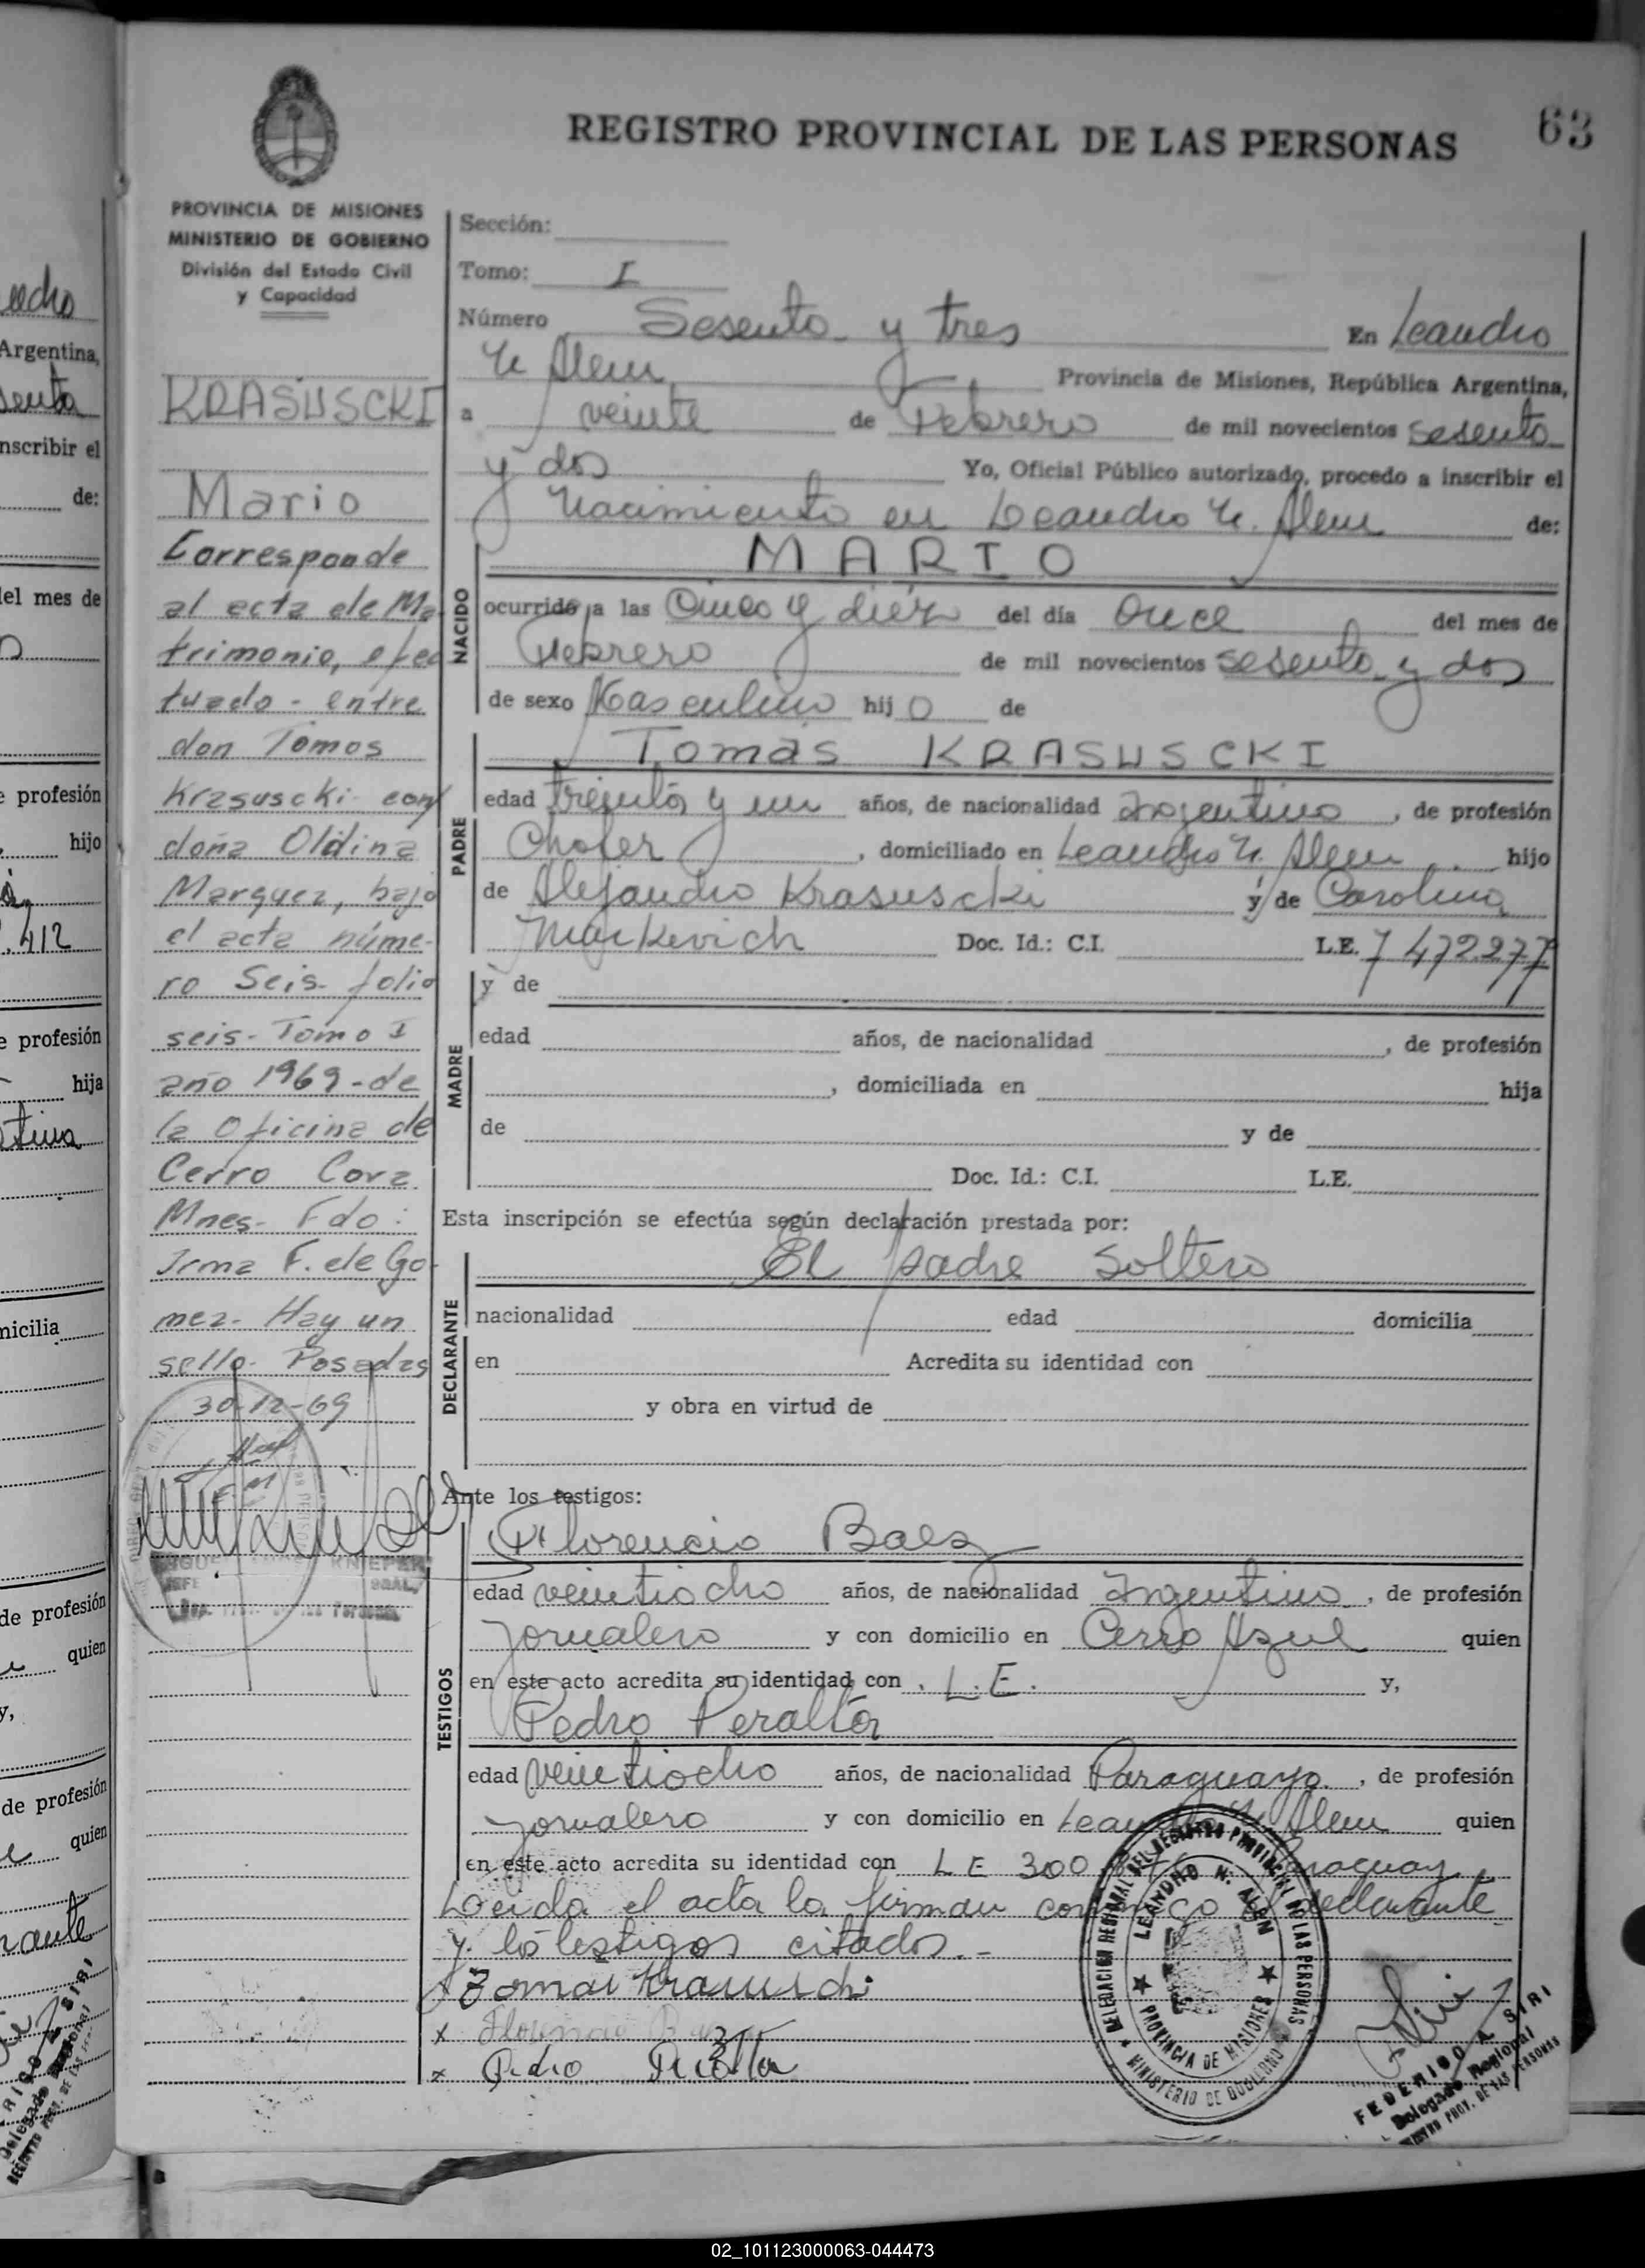 REGISTRO PROVINCIAL DE LAS PERSONAS
63
PROVINCIA DE MISIONES
MINISTERIO DE GOBIERNO
División del Estado Civil
y Capacidad
KRASUSCKI
Mario
Corresponde
al acta de Ma
trimonio, efec
tuado - entre
don Tomas
Krasuscki con
doña Oldina
Marquez, bajo
el acta núme-
ro Seis - folio
seis - Tomo I
año 1969 - de
la Oficina de
Cerro Cora
Mnes - Fdo:
Irma F. de Go-
mez - Hay un
sello - Posadas
30-12-69
Sección:
Tomo: I
Número Sesenta y tres En Leandro
N. Alem Provincia de Misiones, República Argentina,
a veinte de Febrero de mil novecientos sesenta
y dos Yo, Oficial Público autorizado, procedo a inscribir el
Nacimiento en Leandro N. Alem de:
NACIDO
MARIO
ocurrido a las Cinco y diez del día Once del mes de
Febrero de mil novecientos sesenta y dos
de sexo Masculino hij o de
PADRE
Tomás KRASUSCKI
edad treinta y un años, de nacionalidad Argentino, de profesión
Chofer, domiciliado en Leandro N. Alem hijo
de Alejandro Krasuscki y de Carolina
Markevich Doc. Id.: C.I. L.E. 7472277
MADRE
y de
edad años, de nacionalidad , de profesión
, domiciliada en hija
de y de
Doc. Id.: C.I. L.E.
Esta inscripción se efectúa según declaración prestada por:
DECLARANTE
El padre soltero
nacionalidad edad domicilia
en Acredita su identidad con
y obra en virtud de
Ante los testigos:
TESTIGOS
Florencio Baez
edad veintiocho años, de nacionalidad Argentino, de profesión
Jornalero y con domicilio en Cerro Azul quien
en este acto acredita su identidad con L.E. y,
Pedro Peralta
edad veintiocho años, de nacionalidad Paraguayo, de profesión
Jornalero y con domicilio en Leandro N. Alem quien
en este acto acredita su identidad con LE 300 Paraguay
Leida el acta la firman conmigo el declarante
y los testigos citados.-
Tomas Krasuscki
x Florencio Baez
x Pedro Peralta
DELEGACION REGIONAL DEL REGISTRO PROVINCIAL DE LAS PERSONAS
LEANDRO N. ALEM
PROVINCIA DE MISIONES
MINISTERIO DE GOBIERNO
FEDERICO A. SIRI
Delegado Regional
REGISTRO PROV. DE LAS PERSONAS
Argentina,
inscribir el
de:
del mes de
de profesión
hijo
.412
de profesión
hija
domicilia
de profesión
quien
y,
de profesión
quien
02_101123000063-044473